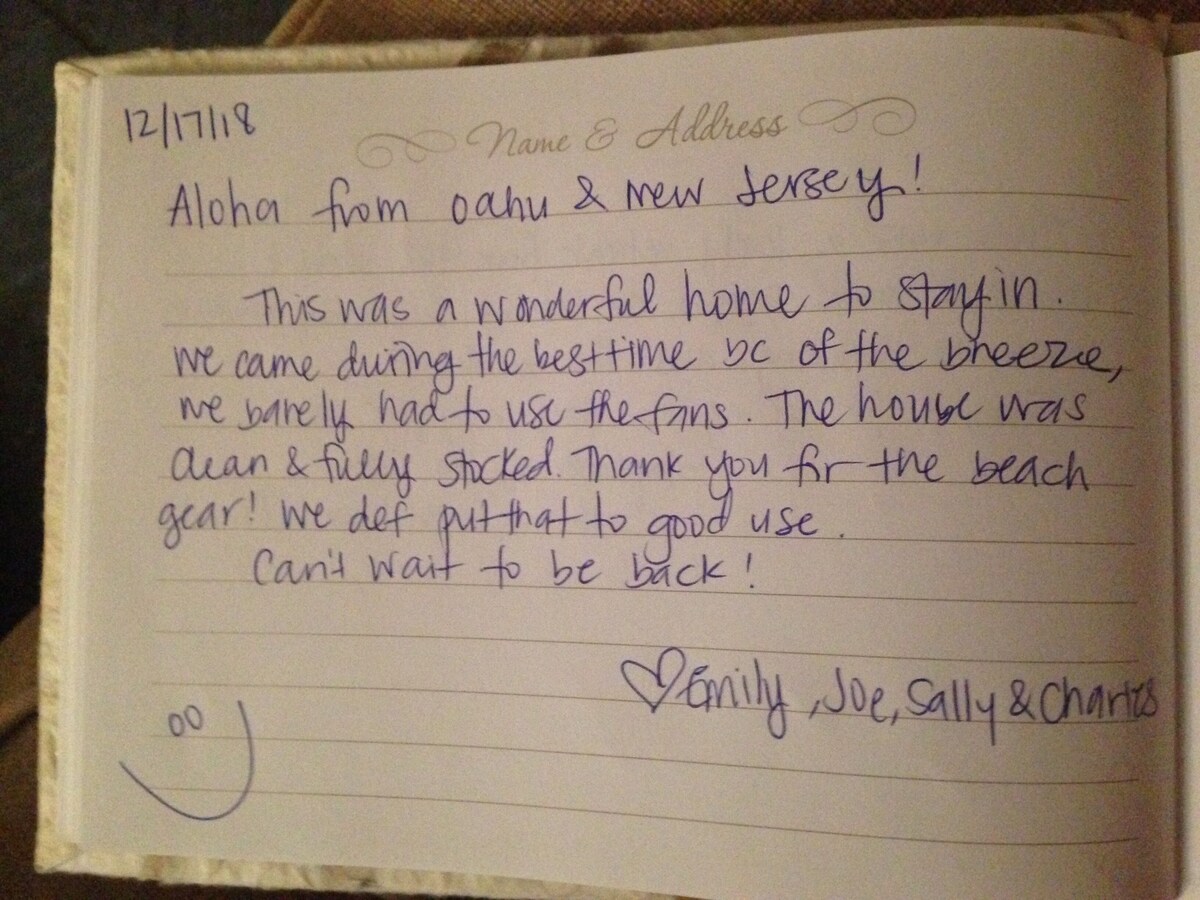 12/17/18
Name & Address
Aloha from Oahu & New Jersey!
This was a wonderful home to stay in.
We came during the best time bc of the breeze,
we barely had to use the fans. The house was
clean & fully stocked. Thank you for the beach
gear! We def put that to good use.
Can't wait to be back!
♡ Emily, Joe, Sally & Charles